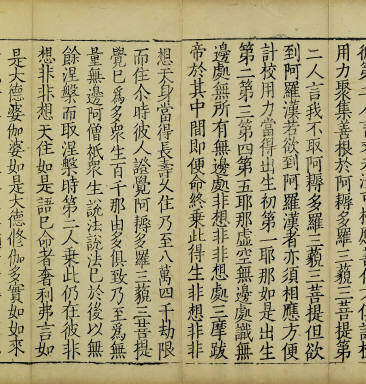 用力聚集善根於阿耨多羅三藐三菩提第
二人言我不取阿耨多羅三藐三菩提但欲
到阿羅漢若欲到阿羅漢者亦須相應方便
計校用力當得出生初第一耶那如是出生
第二第三第四第五耶那虛空無邊處識無
邊處無所有無邊處非想非非想處三摩跋
帝於其中間即便命終乘此得生非想非非
想天身當得長壽久住乃至八萬四千劫限
而住尒時彼人證覺阿耨多羅三藐三菩提
覺已爲多衆生百千那由多俱致乃至爲無
量無邊阿僧祇衆生說法說法已於後以無
餘涅槃而取涅槃時第二人乘此仍在彼非
想非非想天住如是語已命者奢利弗言如
是大德婆伽婆如是大德修伽多實如如來